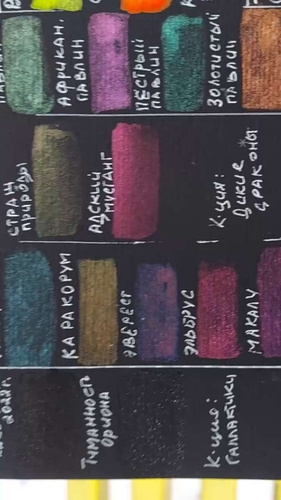 ПАВЛИН
АФРИКАН.
ПАВЛИН
ПЁСТРЫЙ
ПАВЛИН
ЗОЛОТИСТЫЙ
ПАВЛИН
СТРАЖ
ПРИРОДЫ
АДСКИЙ
МУСТАНГ
К-ЦИЯ:
ДИКИЕ
ДРАКОНЫ
КАРАКОРУМ
ЭВЕРЕСТ
ЭЛЬБРУС
МАКАЛУ
ТУМАННОСТЬ
ОРИОНА
К-ЦИЯ:
ГАЛАКТИКИ